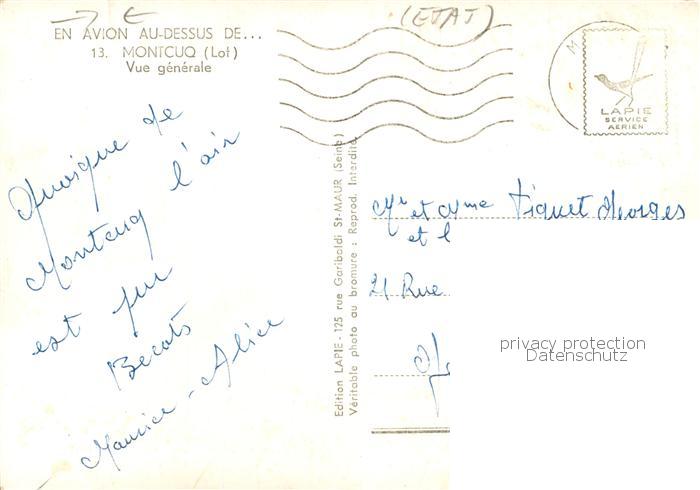 (ETAT)
EN AVION AU-DESSUS DE...
13. MONTCUQ (Lot)
Vue générale
M
LAPIE
SERVICE
AERIEN
Quoique de
Montcuq l'air
est pur
Becots
Maurice - Alice
Edition LAPIE - 125 rue Garibaldi St-MAUR (Seine)
Véritable photo au bromure : Reprod. Interdite
Mr et Mme Piquet Georges
et l
21 Rue
privacy protection
Datenschutz